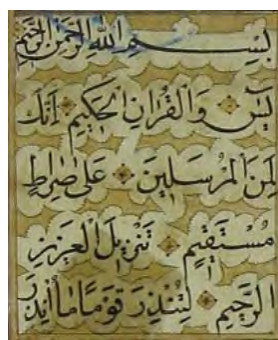 بِسْمِ اللّٰهِ الرَّحْمٰنِ الرَّحِيْمِ
يٰسٓ وَالْقُرْاٰنِ الْحَكِيْمِ اِنَّكَ
لَمِنَ الْمُرْسَلِيْنَ عَلٰى صِرَاطٍ
مُسْتَقِيْمٍ تَنْزِيْلَ الْعَزِيْزِ
الرَّحِيْمِ لِتُنْذِرَ قَوْمًا مَا اُنْذِرَ